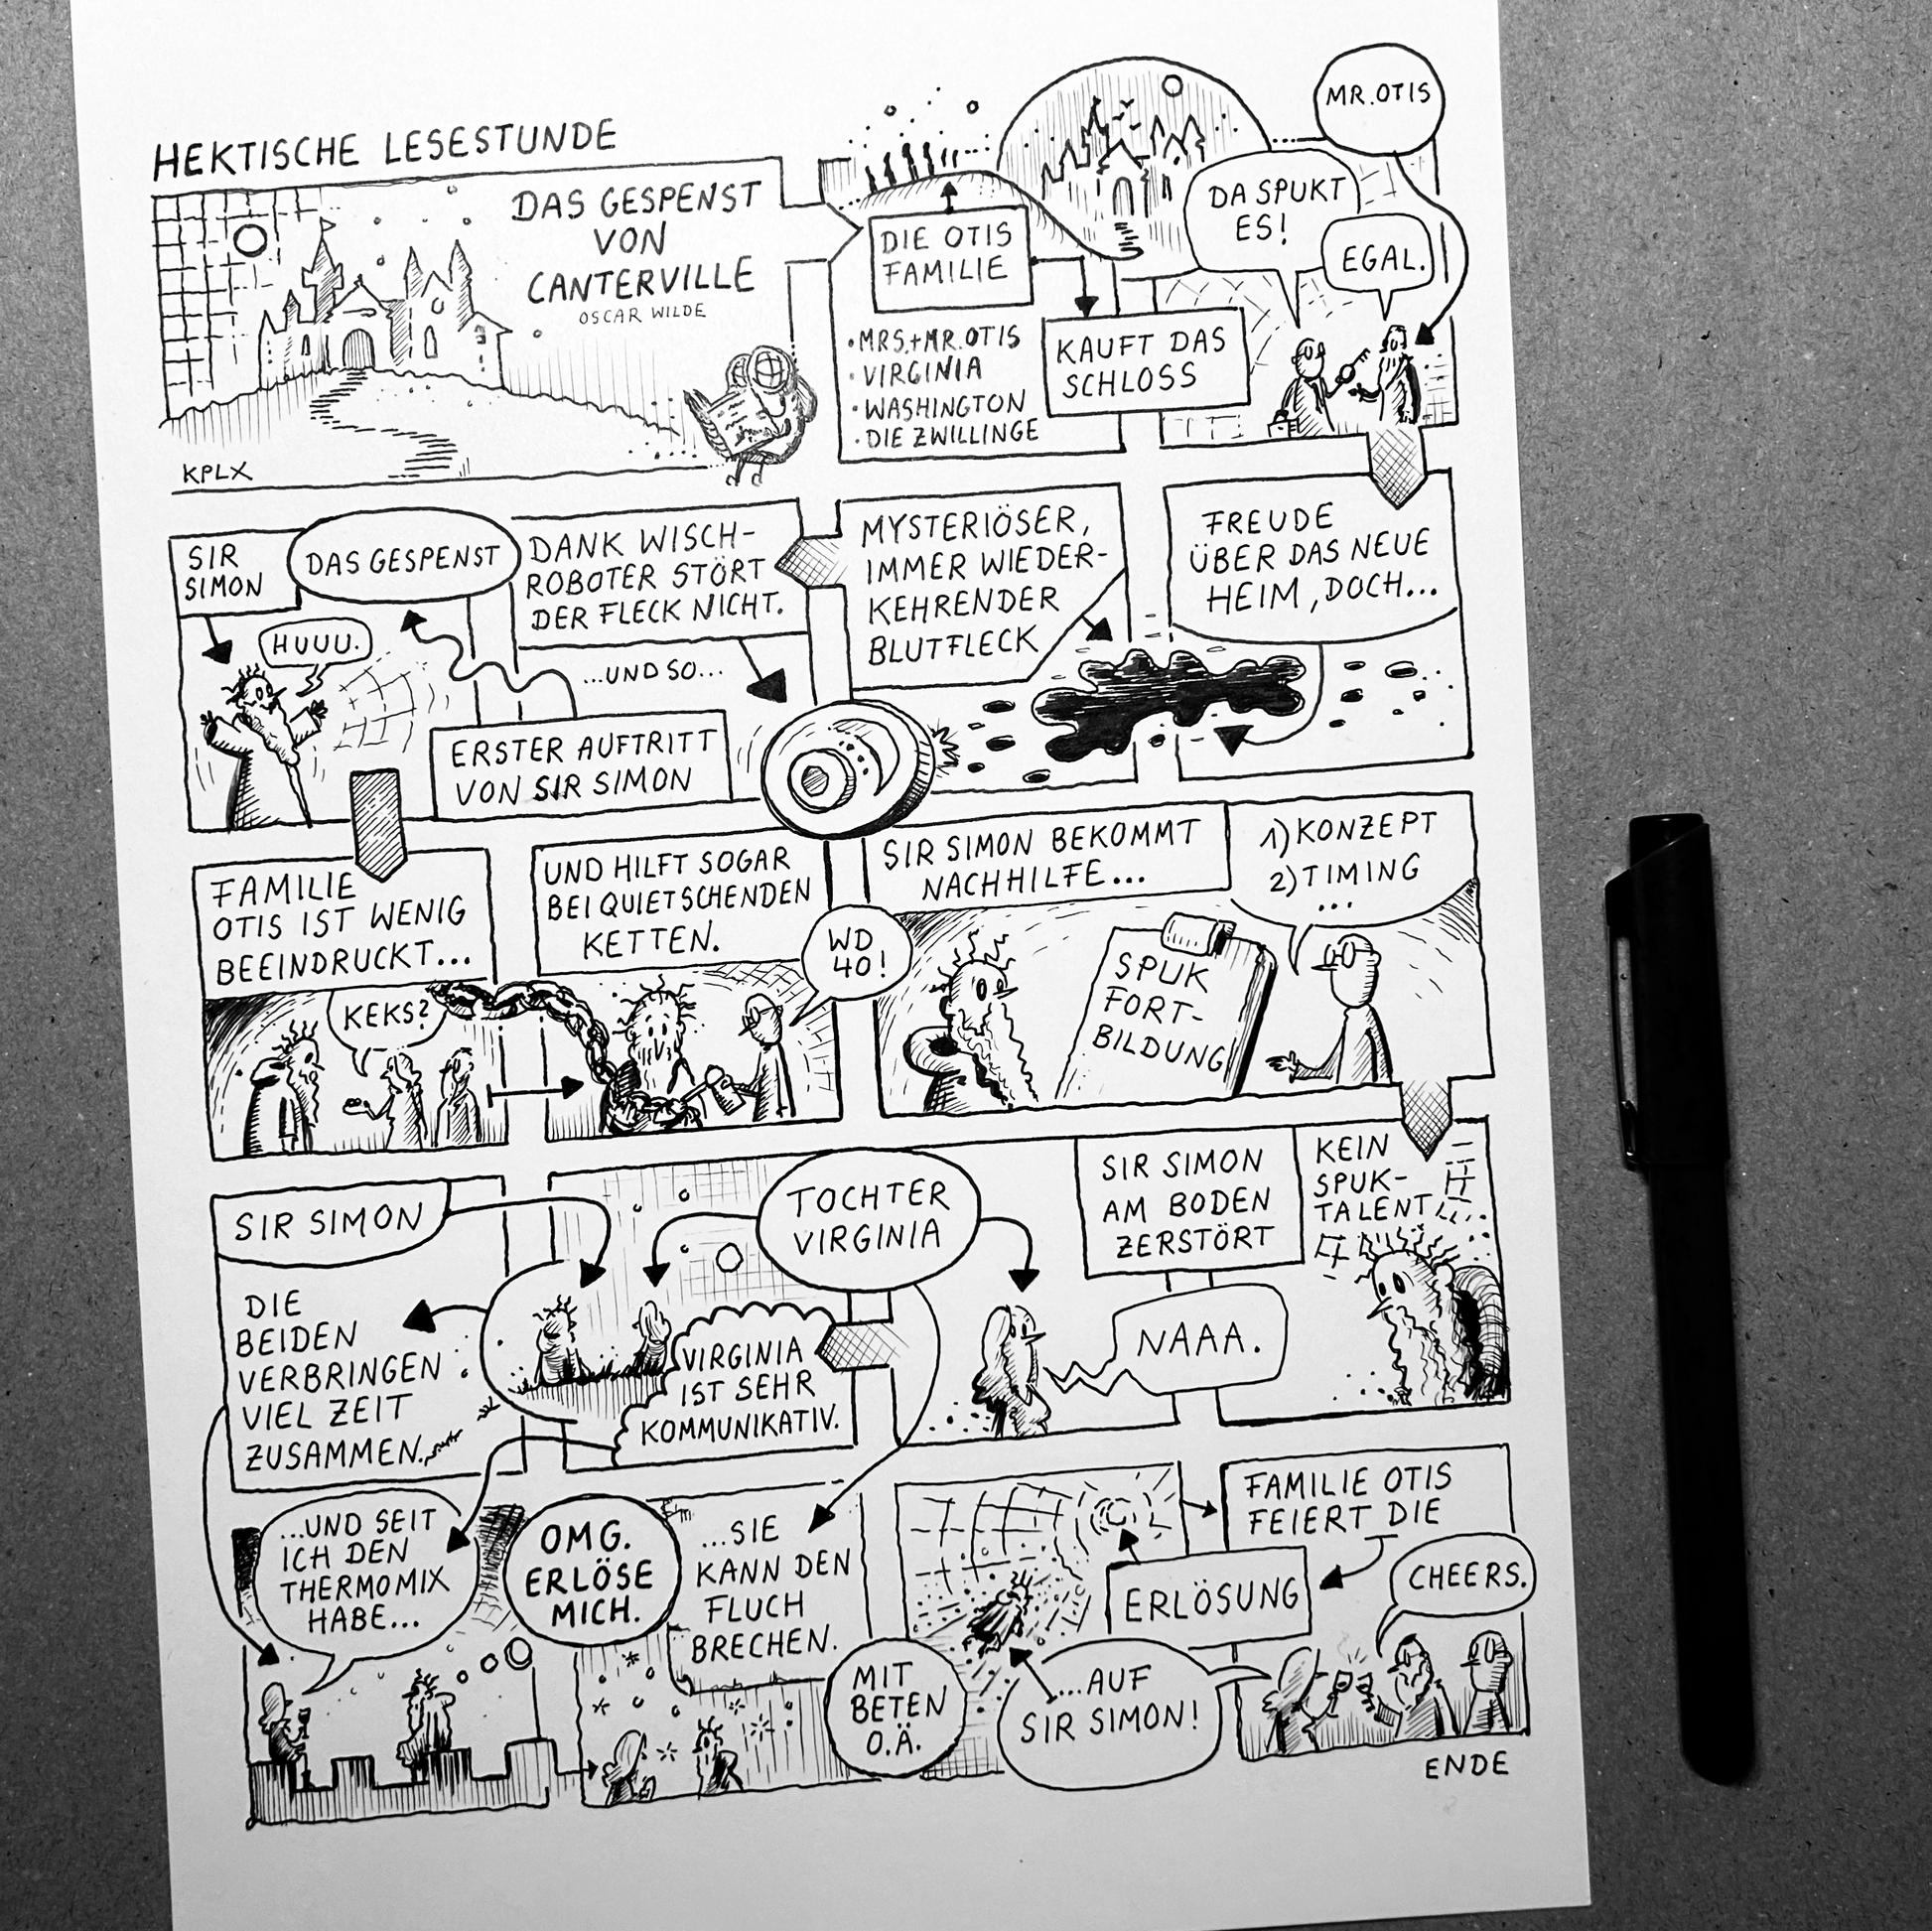 HEKTISCHE LESESTUNDE
DAS GESPENST
VON
CANTERVILLE
OSCAR WILDE
KPLX
DIE OTIS
FAMILIE
• MRS. + MR. OTIS
• VIRGINIA
• WASHINGTON
• DIE ZWILLINGE
KAUFT DAS
SCHLOSS
DA SPUKT
ES!
EGAL.
MR. OTIS
FREUDE
ÜBER DAS NEUE
HEIM, DOCH...
MYSTERIÖSER,
IMMER WIEDER-
KEHRENDER
BLUTFLECK
DANK WISCH-
ROBOTER STÖRT
DER FLECK NICHT.
...UND SO...
ERSTER AUFTRITT
VON SIR SIMON
DAS GESPENST
SIR
SIMON
HUUU.
FAMILIE
OTIS IST WENIG
BEEINDRUCKT...
KEKS?
UND HILFT SOGAR
BEI QUIETSCHENDEN
KETTEN.
WD
40!
SIR SIMON BEKOMMT
NACHHILFE...
1) KONZEPT
2) TIMING
...
SPUK
FORT-
BILDUNG
KEIN
SPUK-
TALENT
SIR SIMON
AM BODEN
ZERSTÖRT
NAAA.
TOCHTER
VIRGINIA
VIRGINIA
IST SEHR
KOMMUNIKATIV.
SIR SIMON
DIE
BEIDEN
VERBRINGEN
VIEL ZEIT
ZUSAMMEN.
...UND SEIT
ICH DEN
THERMOMIX
HABE...
OMG.
ERLÖSE
MICH.
...SIE
KANN DEN
FLUCH
BRECHEN.
MIT
BETEN
O.Ä.
ERLÖSUNG
FAMILIE OTIS
FEIERT DIE
...AUF
SIR SIMON!
CHEERS.
ENDE